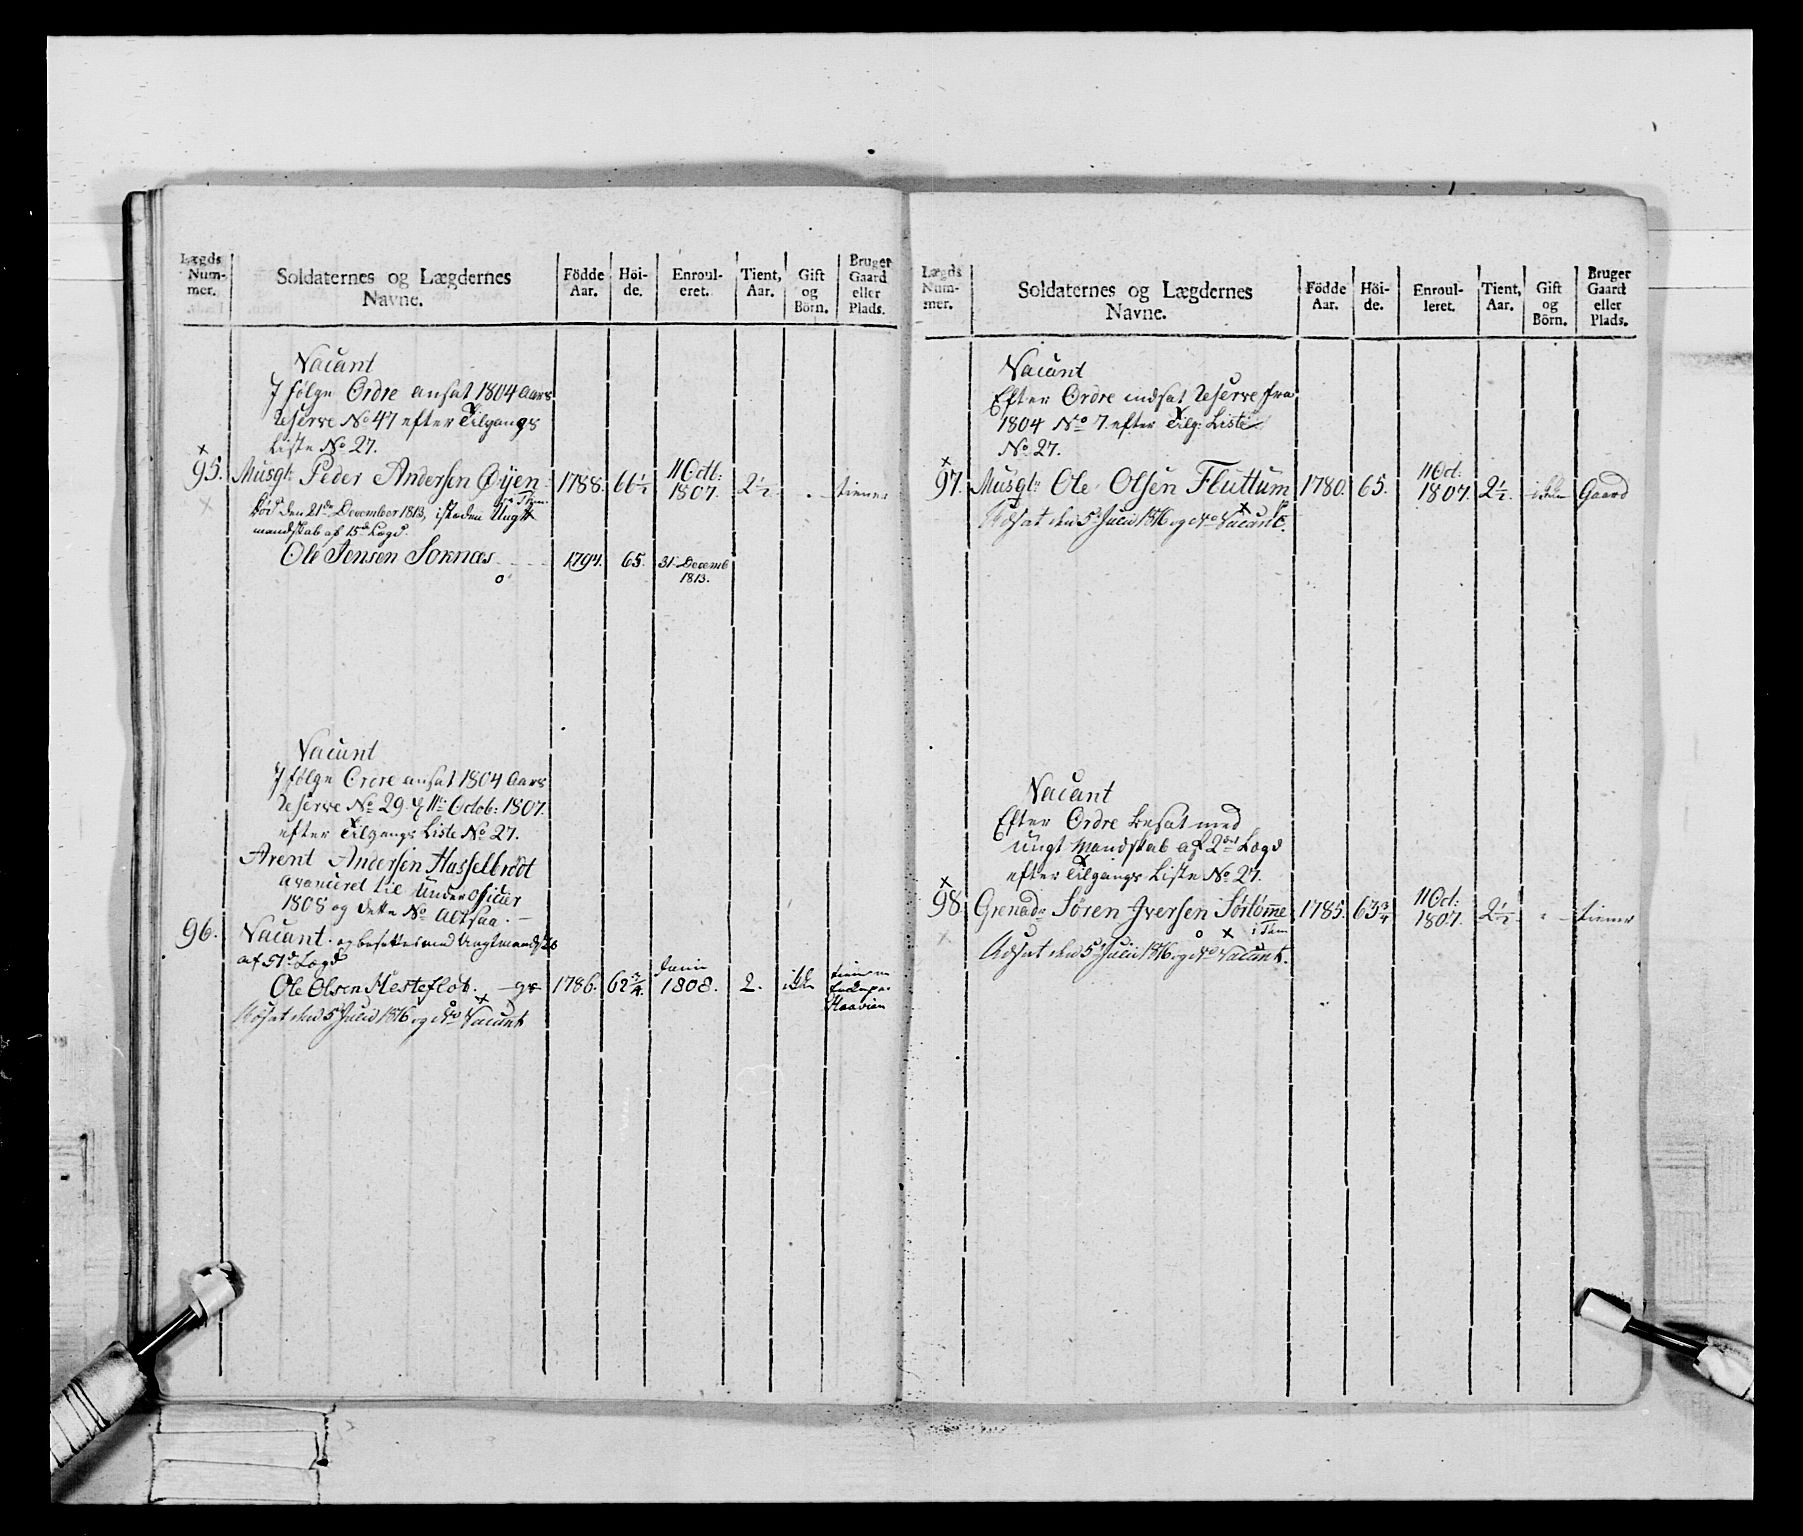 Lægds Num- mer.
Soldaternes og Lægdernes Navne.
Födde Aar.
Höi- de.
Enroul- eret.
Tient, Aar.
Gift og Börn.
Bruger Gaard eller Plads.
Vacant
I følge Ordre ansat 1804 Aars
Reserve No 47 efter Tilgangs
Liste No 27.
95. Musqt: Peder Andersen Øyen 1788. 66½ 11 Octb: 1807. 2½. - tiener
død den 21de December 1813, isteden Ungt
mandskab af 15d Lægd.
Ole Jensen Soknæs 1794. 65. 31 Decemb 1813.
o
Vacant
I følge Ordre ansat 1804 Aars
Reserve No 29. 11te Octob: 1807.
efter Tilgangs Liste No 27.
Arent Andersen Hasselbrödt
avanceret til Under Officier
1808 og dette No altsaa. -
96. Vacant. og besettes med Ungtmandskab
af 51d Lægd
Ole Olsen Mestefløb. 1786. 62¾. Junii 1808. 2. ikke
Udsat den 5 Julii 1816 og No Vacant
Lægds Num- mer.
Soldaternes og Lægdernes Navne.
Födde Aar.
Höi- de.
Enroul- leret.
Tient, Aar.
Gift og Börn.
Bruger Gaard eller Plads.
Vacant
Efter Ordre indsat Reserve fra
1804 No 7. efter Tilg: Liste
No 27.
97. Musqt: Ole Olsen Fluttum 1780. 65. 11 Oct: 1807. 2½. ikke Gaard
Udsat den 5 Julii 1816 og No Vacant.
Vacant
Efter Ordre besat med
Ungt Mandskab af 2den Lægd
efter Tilgangs Liste No 27.
98. Grenadr Søren Iversen Sørtømme 1785. 63¾ 11 Oct: 1807. 2½. - tiener
o x
Udsat den 5 Julii 1816 og No Vacant.